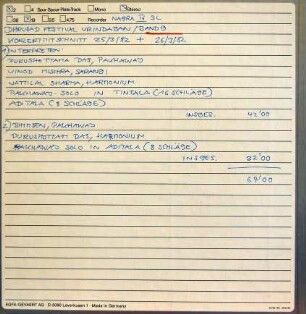 Mono
Stereo
Recorder NAGRA IV SL
DHRUPAD FESTIVAL VRINDABAN / BAND 9
KONZERTMITSCHNITT 25/2/82 + 26/2/82
1) INTERPRETEN:
PURUSHOTTAMA DAS, PAKHAWAJ
VINOD MISHRA, SARANGI
SHARMA, HARMONIUM
PAKHAWAJ SOLO IN TINTALA (16 SCHLÄGE)
ADITALA (8 SCHLÄGE)
INSGES. 42'00
2) PAKHAWAJ
PURUSHOTTAM DAS, HARMONIUM
PAKHAWAJ SOLO IN ADITALA (8 SCHLÄGE)
INSGES.
AGFA-GEVAERT AG · D-5090 Leverkusen 1 Made in Germany